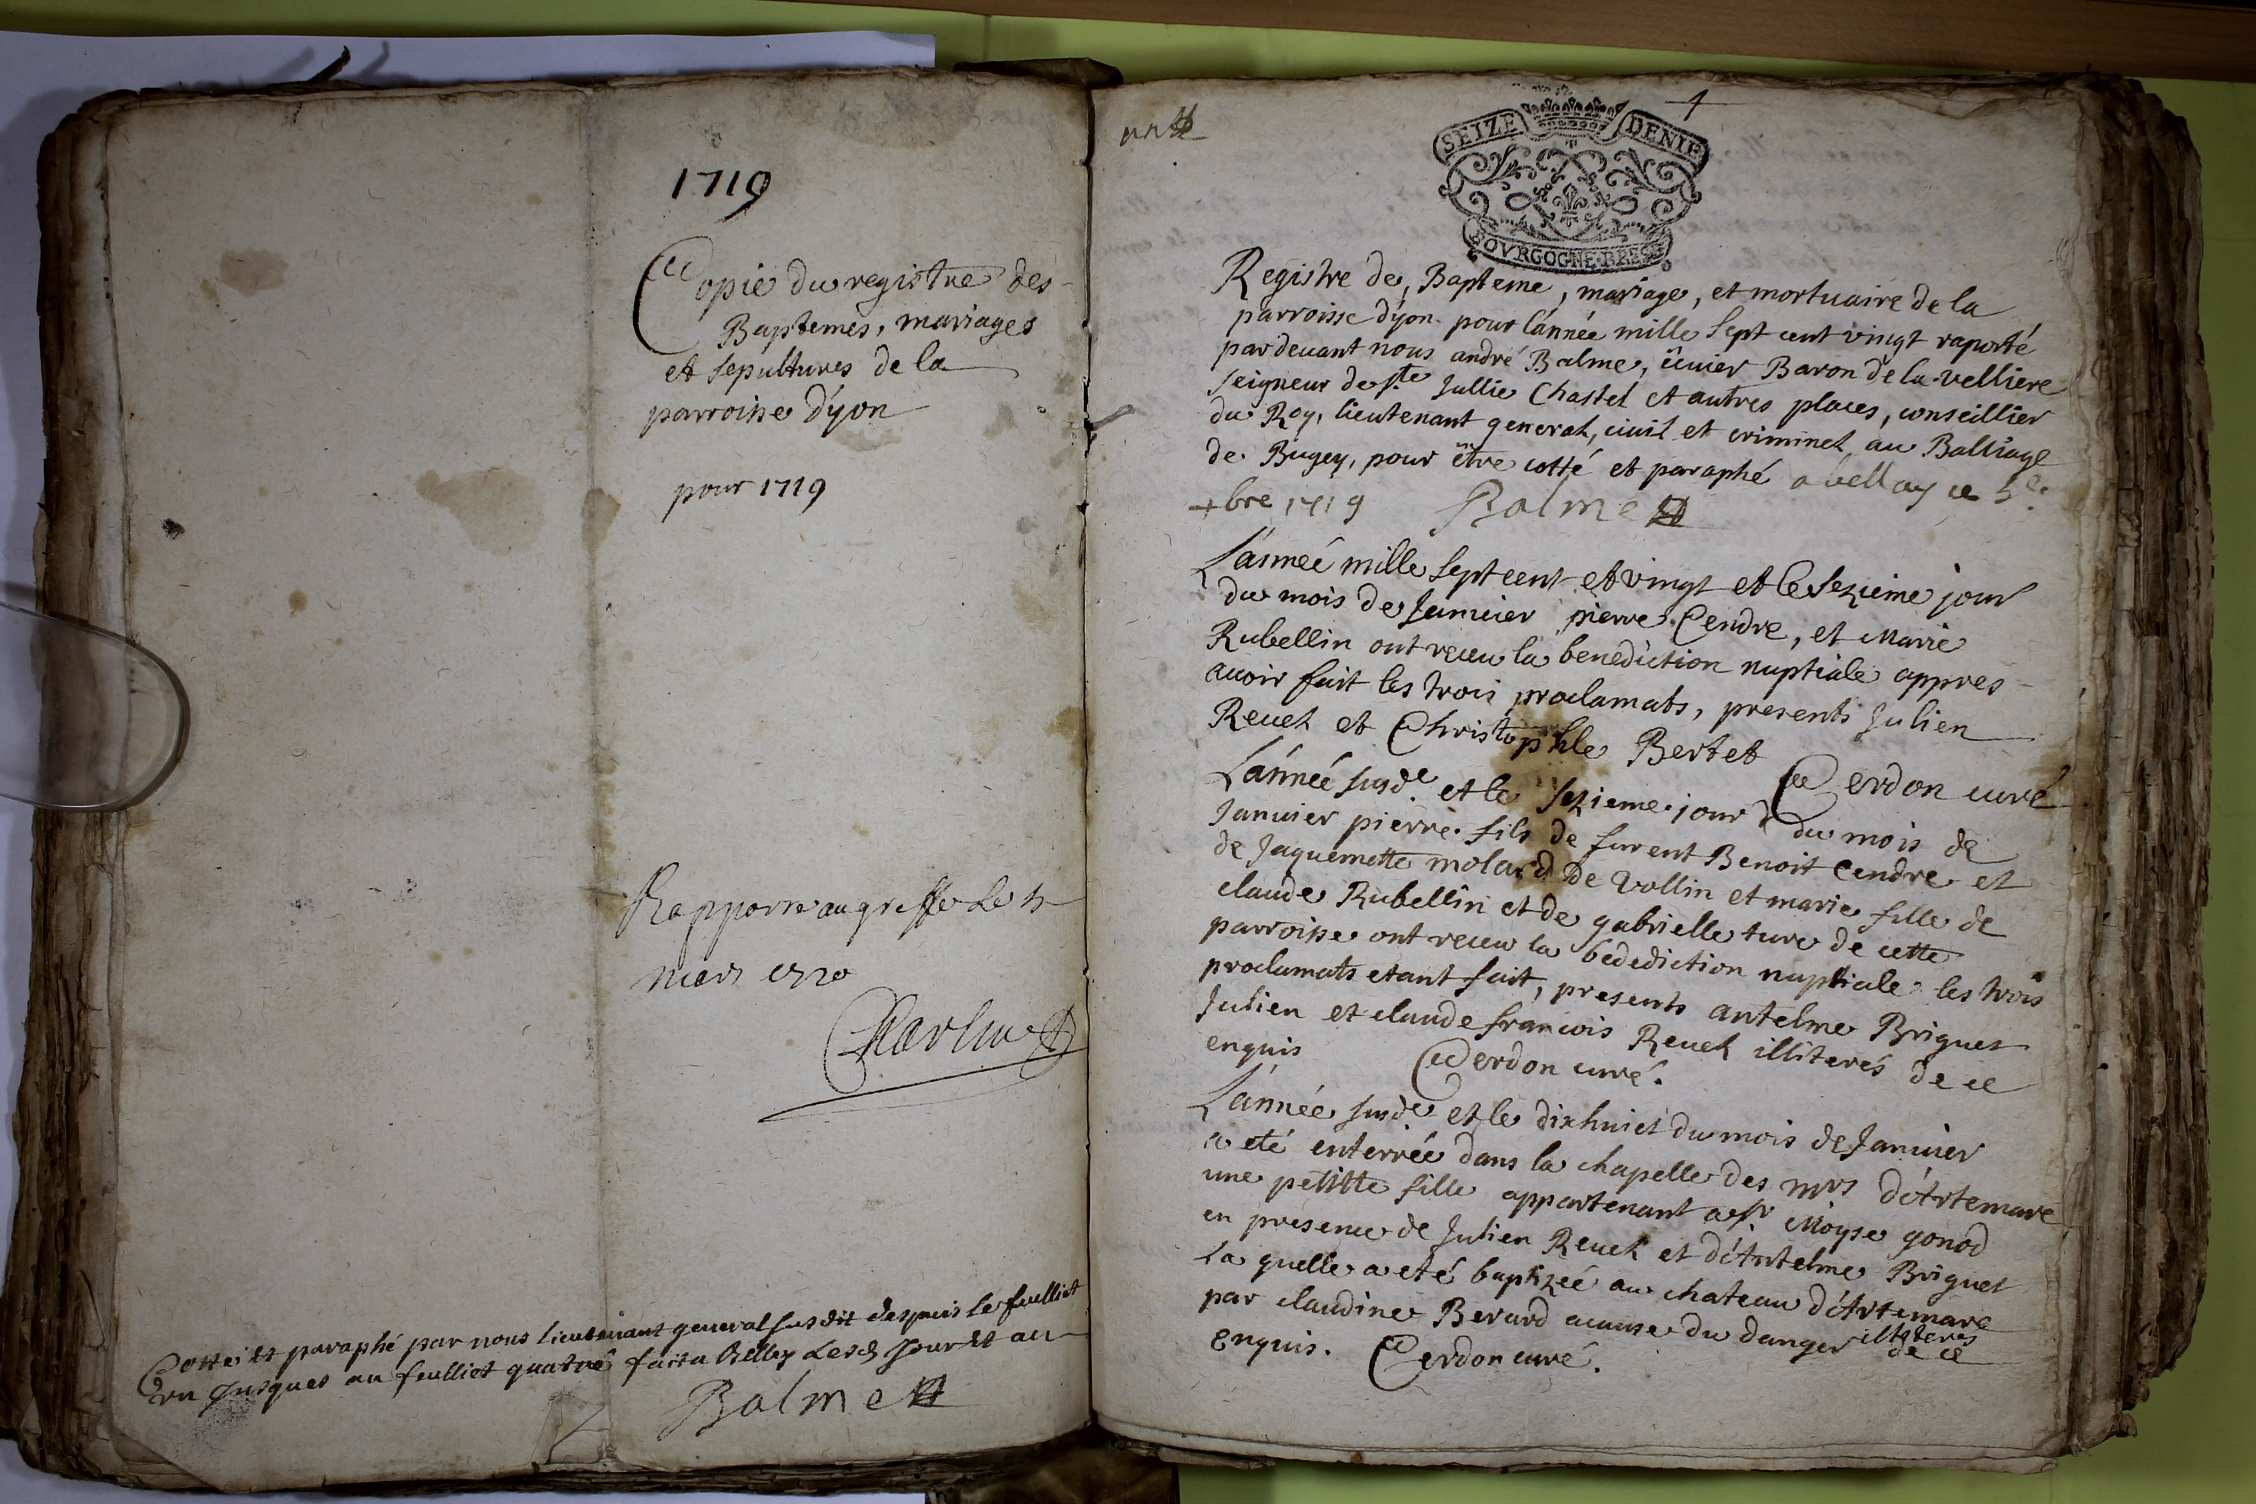 1719
Copie du registre des
Baptemes, mariages
et sepultures de la
parroisse d'yon
pour 1719
Rapporté au greffe le 5
mars 1720
Cotté et paraphé par nous lieutenant general susdit despuis le feulliet
un jusques au feulliet quatre fait a Belley Lesd jour et an
Balme
un
1
SEIZE DENIE
BOVRGOGNE BRESSE
Registre de, Bapteme, mariage, et mortuaire de la
parroisse d'yon pour l'année mille sept cent vingt raporté
pardeuant nous andré Balme, écuier Baron de la velliere
seigneur de ste Jullie Chastel et autres places, conseillier
du Roy, lieutenant general, ciuil et criminel au Balliage
de Bugey, pour être cotté et paraphé a bellay ce 5e
xbre 1719 Balme
L'année mille sept cent et vingt et le sezieme jour
du mois de Januier pierre Cendre, et Marie
Rubellin ont receu la benediction nuptiale appres
auoir fait les trois proclamats, presents Julien
Reuel et Christophle Bertet Cerdon curé
L'année susde et le sezieme jour du mois de
Januier pierre fils de furent Benoit Cendre et
de Jaquemette molard de Vollin et marie fille de
claude Rubellin et de gabrielle ture de cette
parroisse ont receu la bedediction nuptiale les trois
proclamats etant fait, presents antelme Briguet
Julien et claude francois Reuel illiterés de ce
enquis Cerdon curé.
L'année susde et le dixhuict du mois de Januier
a eté enterrée dans la chapelle des mrs d'Artemare
une petitte fille appartenant a sr Moyse gonod
en presence de Julien Reuel et d'Antelme Briguet
La quelle a eté baptizée au chateau d'Artemare
par claudine Berard acause du danger illiteres
de ce
Enquis. Cerdon curé.